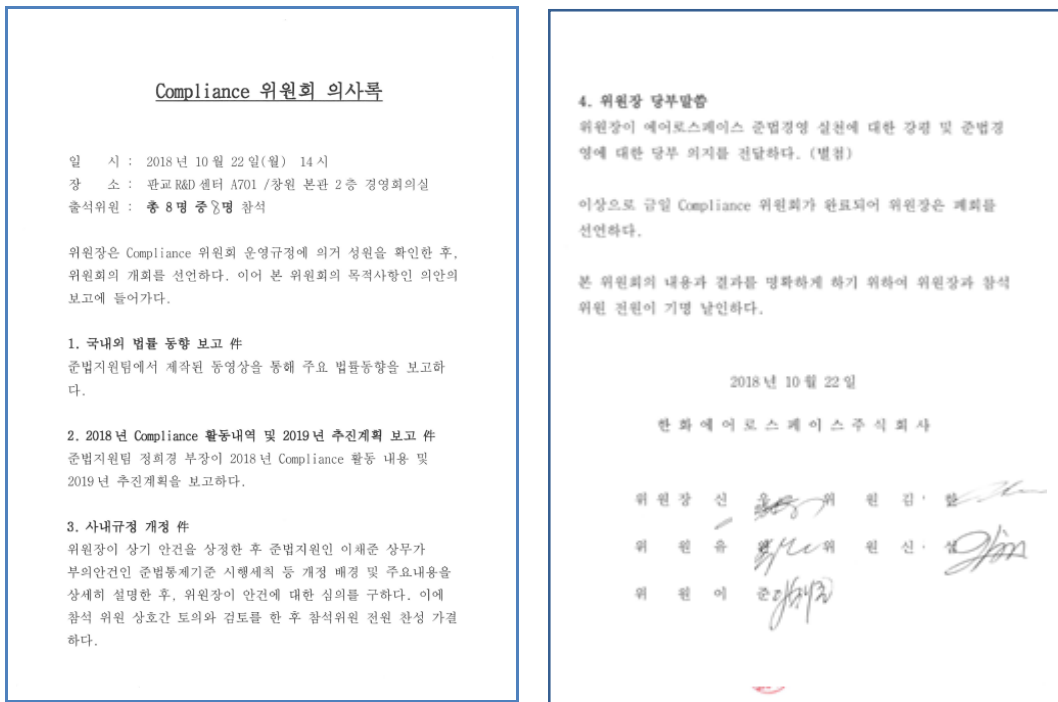 Compliance 위원회 의사록
일 시 : 2018년 10월 22일(월) 14시
장 소 : 판교 R&D센터 A701 /창원 본관 2층 경영회의실
출석위원 : 총 8명 중 8명 참석
위원장은 Compliance 위원회 운영규정에 의거 성원을 확인한 후,
위원회의 개회를 선언하다. 이어 본 위원회의 목적사항인 의안의
보고에 들어가다.
1. 국내외 법률 동향 보고 件
준법지원팀에서 제작된 동영상을 통해 주요 법률동향을 보고하
다.
2. 2018년 Compliance 활동내역 및 2019년 추진계획 보고 件
준법지원팀 정희경 부장이 2018년 Compliance 활동 내용 및
2019년 추진계획을 보고하다.
3. 사내규정 개정 件
위원장이 상기 안건을 상정한 후 준법지원인 이채준 상무가
부의안건인 준법통제기준 시행세칙 등 개정 배경 및 주요내용을
상세히 설명한 후, 위원장이 안건에 대한 심의를 구하다. 이에
참석 위원 상호간 토의와 검토를 한 후 참석위원 전원 찬성 가결
하다.
4. 위원장 당부말씀
위원장이 에어로스페이스 준법경영 실천에 대한 강평 및 준법경
영에 대한 당부 의지를 전달하다. (별첨)
이상으로 금일 Compliance 위원회가 완료되어 위원장은 폐회를
선언하다.
본 위원회의 내용과 결과를 명확하게 하기 위하여 위원장과 참석
위원 전원이 기명 날인하다.
2018년 10월 22일
한화에어로스페이스주식회사
위원장 신 위 원 김
위 원 유 위 원 신
위 원 이 준